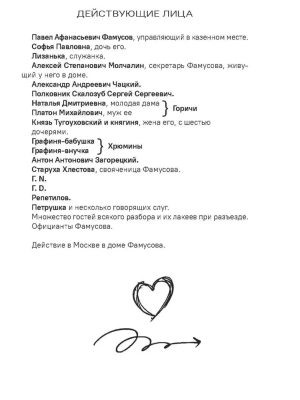 ДЕЙСТВУЮЩИЕ ЛИЦА
Павел Афанасьевич Фамусов, управляющий в казенном месте.
Софья Павловна, дочь его.
Лизанька, служанка.
Алексей Степанович Молчалин, секретарь Фамусова, живу-
щий у него в доме.
Александр Андреевич Чацкий.
Полковник Скалозуб Сергей Сергеевич.
Наталья Дмитриевна, молодая дама
Платон Михайлович, муж ее
Горичи
Князь Тугоуховский и княгиня, жена его, с шестью
дочерями.
Графиня-бабушка
Графиня-внучка
Хрюмины
Антон Антонович Загорецкий.
Старуха Хлестова, свояченица Фамусова.
Г. N.
Г. D.
Репетилов.
Петрушка и несколько говорящих слуг.
Множество гостей всякого разбора и их лакеев при разъезде.
Официанты Фамусова.
Действие в Москве в доме Фамусова.